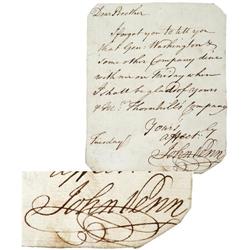 Dear Brother
I forgot to tell you
that Gen: Washington &
Some other Company dine
with me on Friday when
I shall be glad of yours
& Mr. Thornhill's Company
Yours
affect. ly
Tuesday
John Penn
John Penn